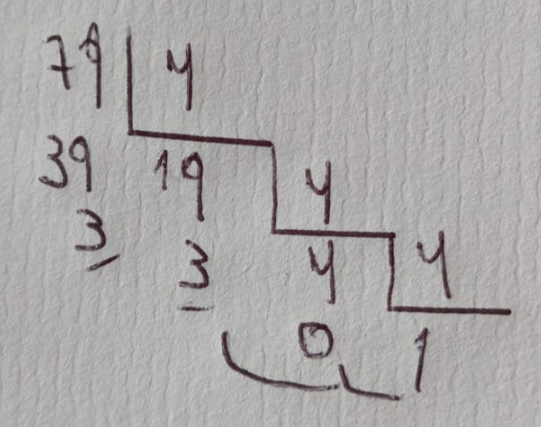 79 4
39 19 4
3 3 4 4
0 1